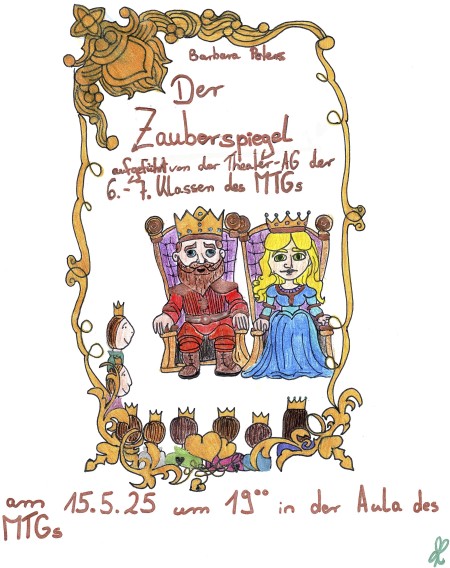 Barbara Peters
Der
Zauberspiegel
aufgeführt von der Theater-AG der
6.-7. Klassen des MTGs
am 15.5.25 um 19⁰⁰ in der Aula des
MTGs